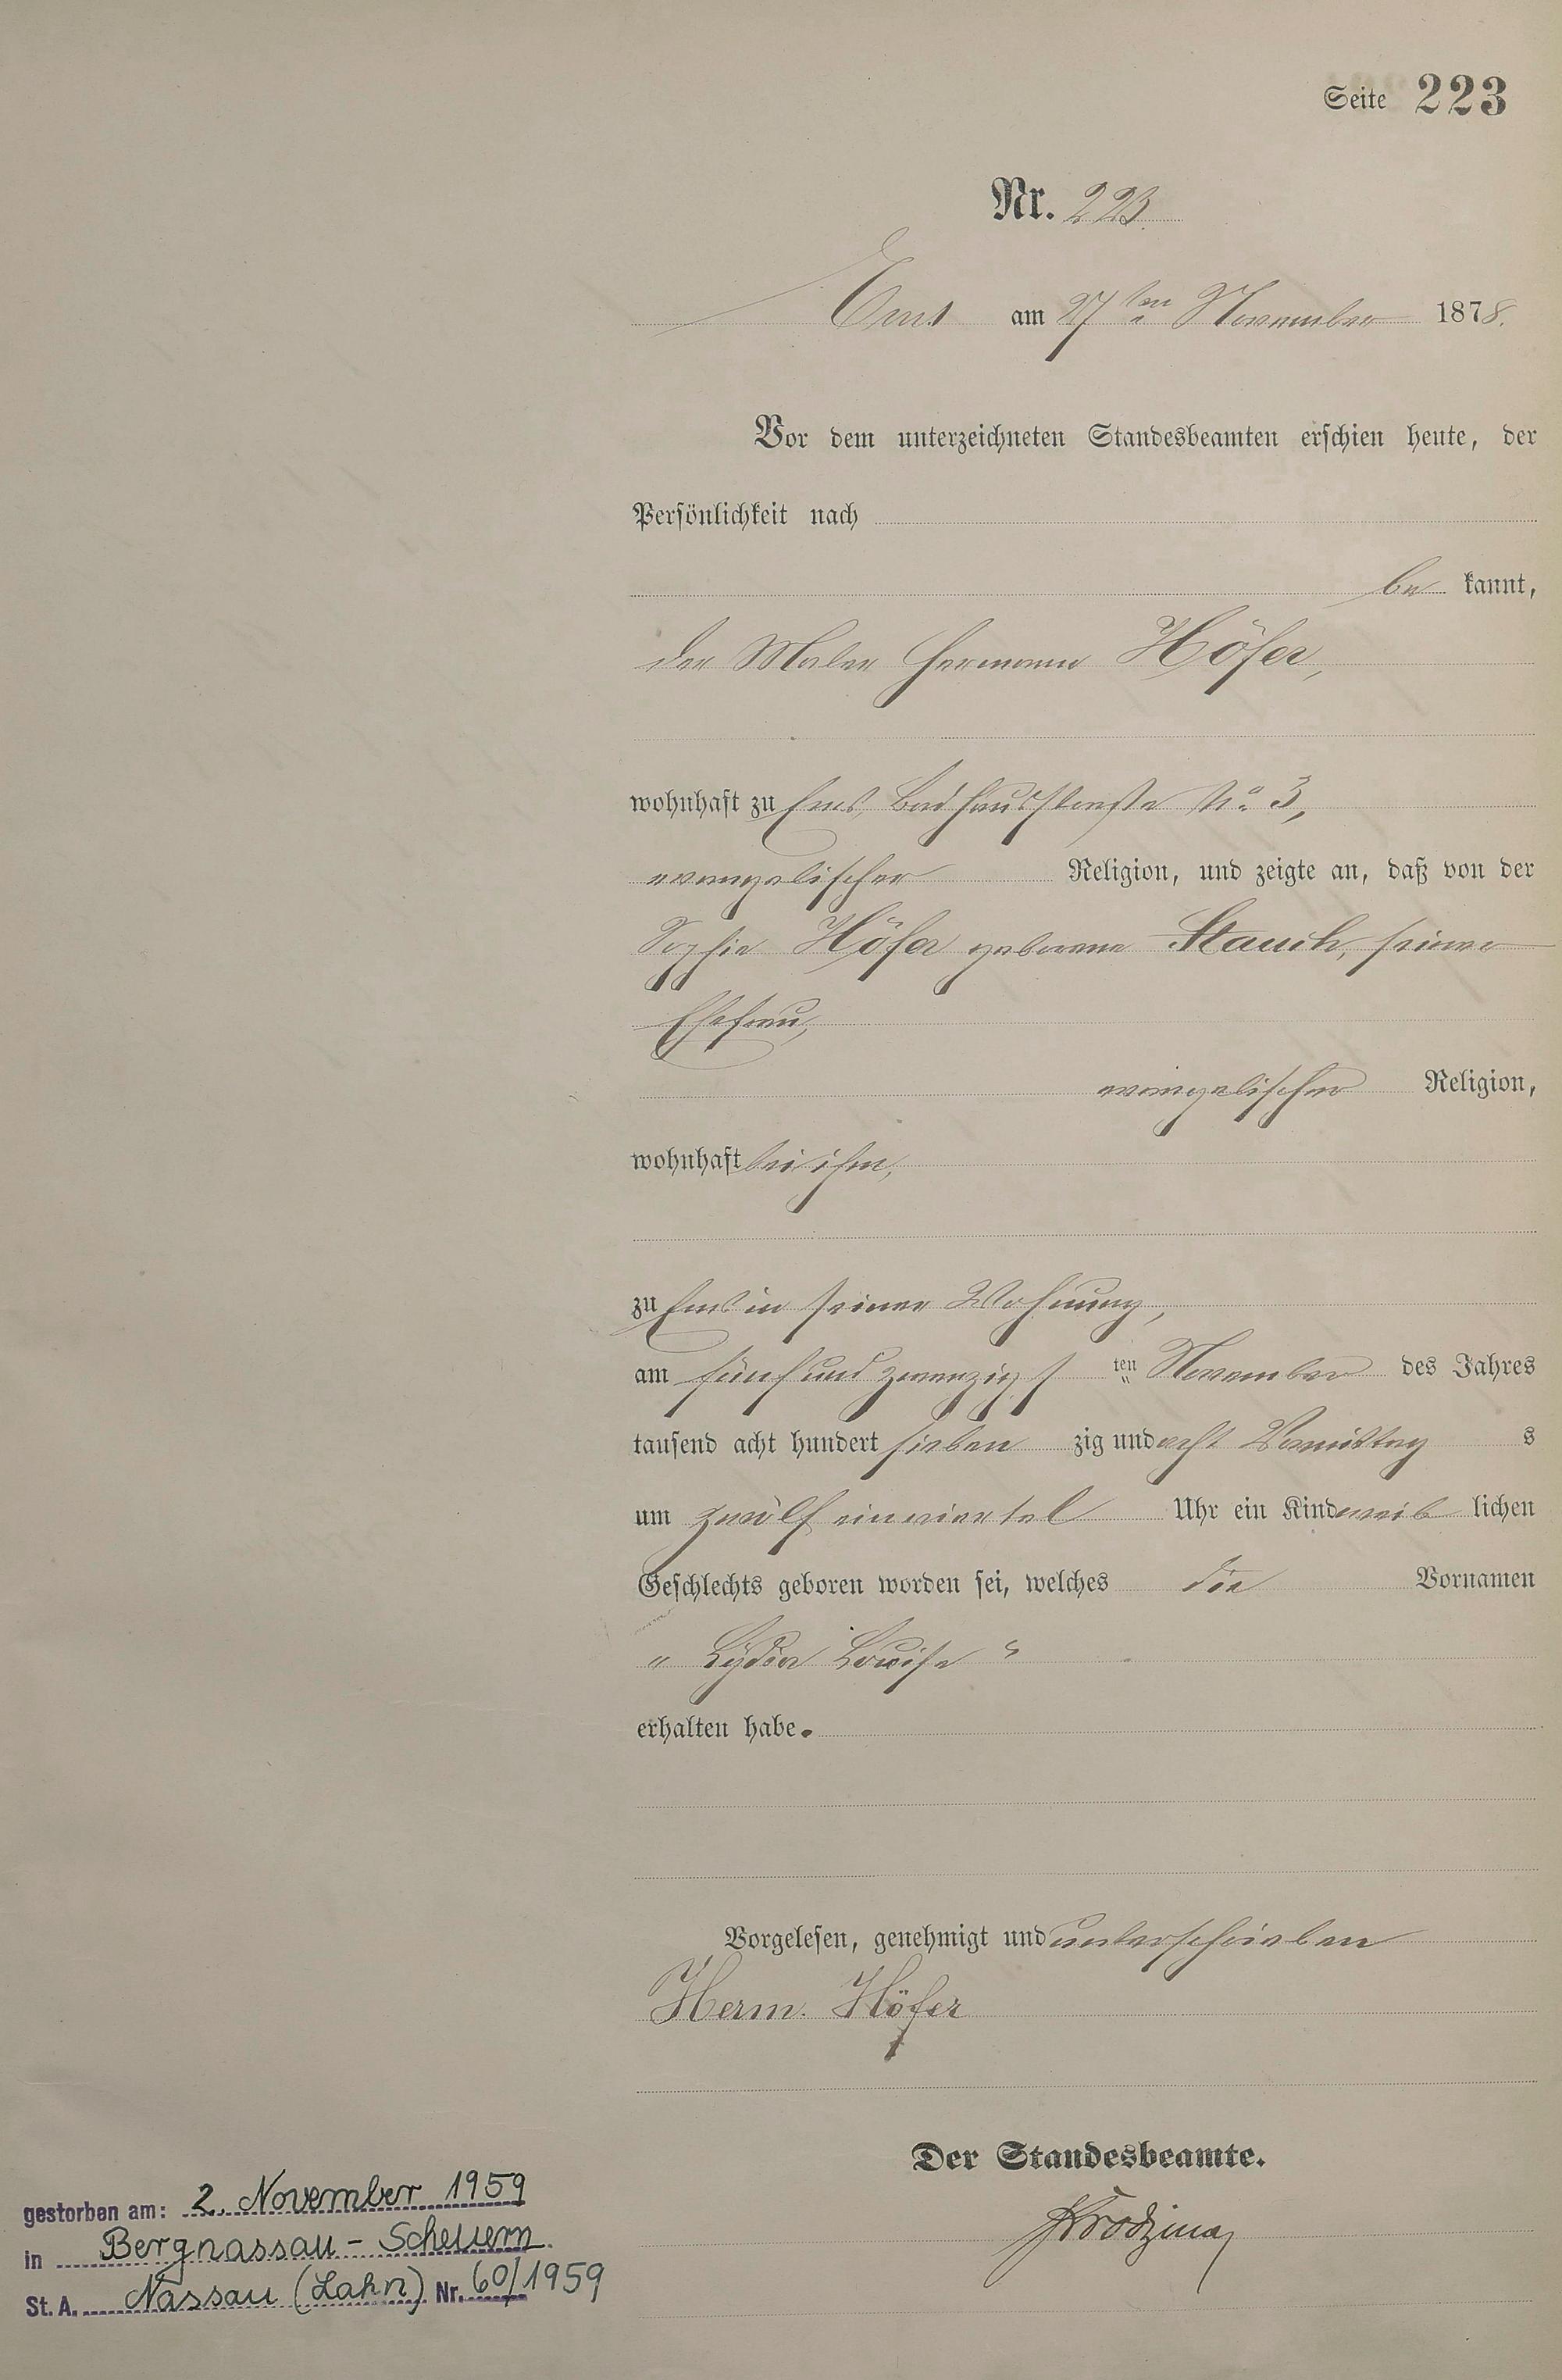 Seite 223
Nr. 223.
Ems am 27ten November 1878.
Vor dem unterzeichneten Standesbeamten erschien heute, der
Persönlichkeit nach
be kannt,
der Maler Hermann Höfer,
wohnhaft zu Ems, Badhausstraße No. 3,
evangelischer Religion, und zeigte an, daß von der
Sophie Höfer geborene Stauch, seiner
Ehefrau,
evangelischer Religion,
wohnhaft bei ihm,
zu Ems in seiner Wohnung,
am fünf und zwanzigsten November des Jahres
tausend acht hundert sieben zig und acht Vormittag s
um zwölf einviertel Uhr ein Kind weib lichen
Geschlechts geboren worden sei, welches die Vornamen
„Lydia Louise“
erhalten habe.
Vorgelesen, genehmigt und unterschrieben
Herm. Höfer
Der Standesbeamte.
gestorben am: 2. November 1959
in Bergnassau-Scheuern.
St. A. Nassau (Lahn) Nr. 60/1959